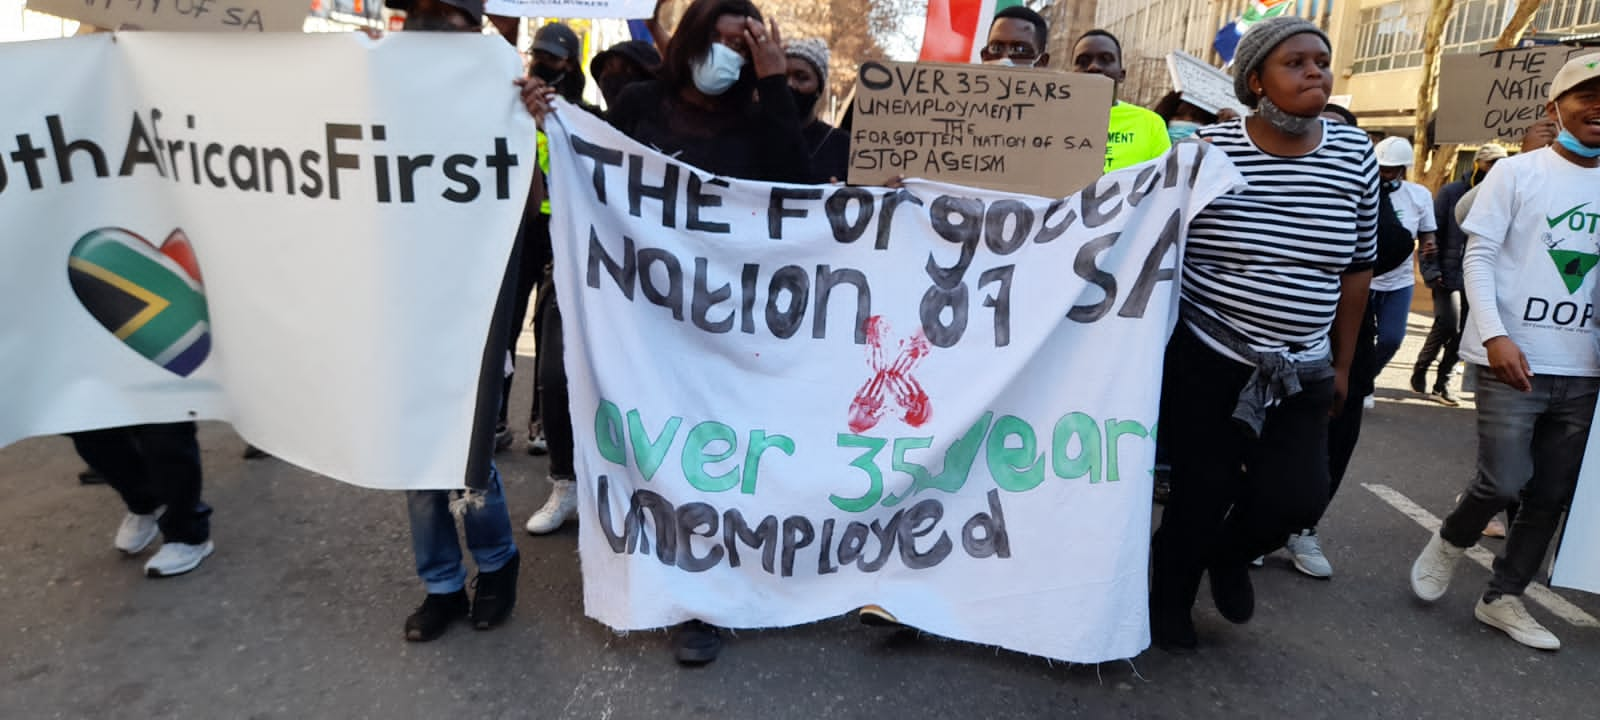 OF SA
uthAfricansFirst
OVER 35 YEARS
UNEMPLOYMENT
THE
FORGOTTEN NATION OF SA
STOP AGEISM
THE Forgotten
Nation of SA
over 35 years
unemployed
MENT
THE
NATIO
OVER
VOT
DOP